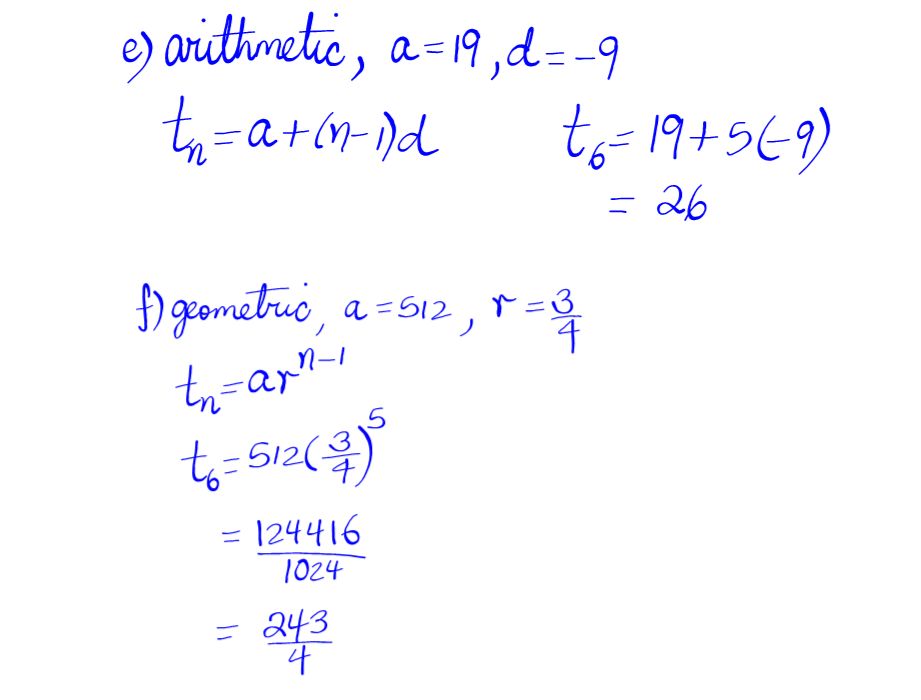 e) arithmetic, a=19, d=-9
tₙ=a+(n-1)d
t₆=19+5(-9)
= 26
f) geometric, a=512, r=3/4
tₙ=arⁿ⁻¹
t₆=512(3/4)⁵
= 124416/1024
= 243/4